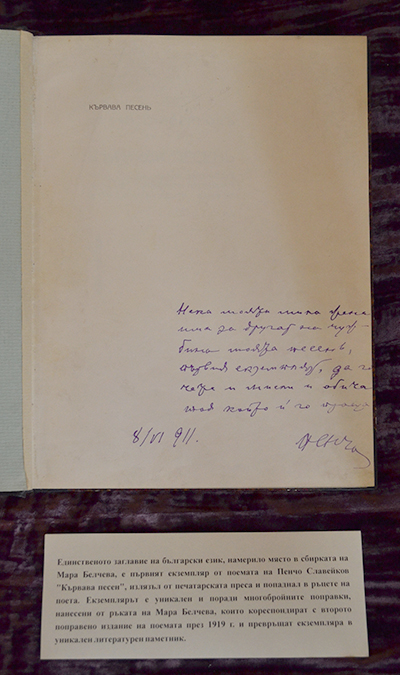 КЪРВАВА ПѢСЕНЬ
Нека моята мила
има за другар на
тоязъ песень,
първия екземпляръ, да го
и мисли и обича
тоя който ѝ го
8/VI 911.
Пенчо
Единственото заглавие на български език, намерило място в сбирката на
Мара Белчева, е първият екземпляр от поемата на Пенчо Славейков
"Кървава песен", излязъл от печатарската преса и попаднал в ръцете на
поета. Екземплярът е уникален и поради многобройните поправки,
нанесени от ръката на Мара Белчева, които кореспондират с второто
поправено издание на поемата през 1919 г. и превръщат екземпляра в
уникален литературен паметник.